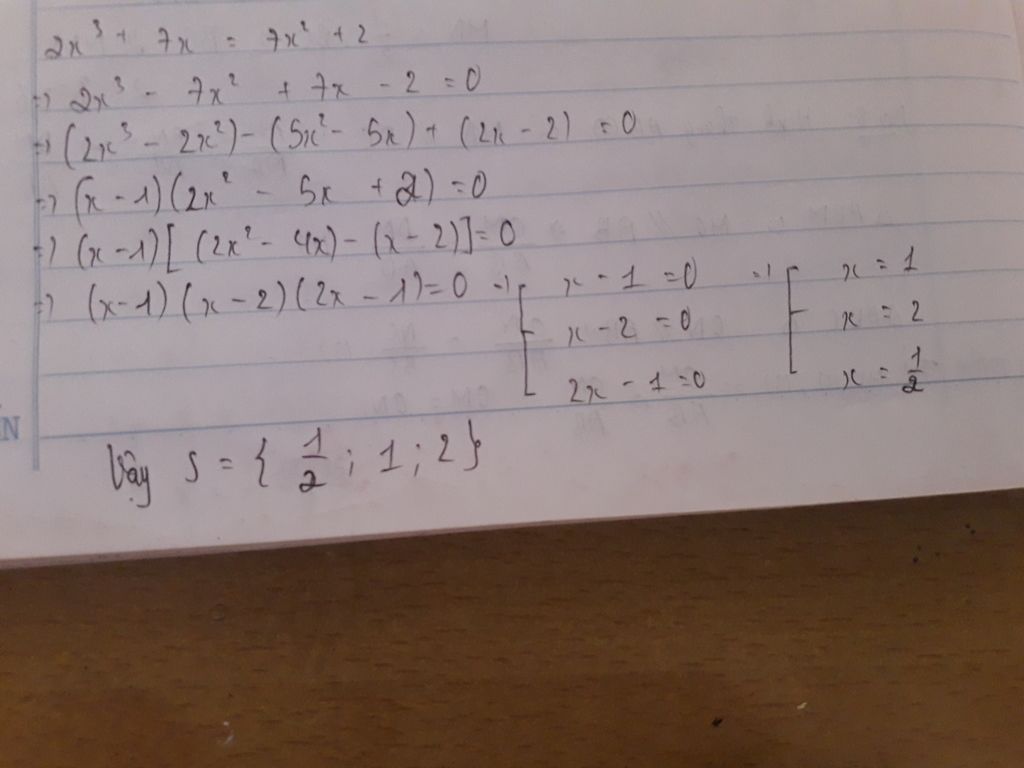 2x³ + 7x = 7x² + 2
=> 2x³ - 7x² + 7x - 2 = 0
=> (2x³ - 2x²) - (5x² - 5x) + (2x - 2) = 0
=> (x - 1)(2x² - 5x + 2) = 0
=> (x - 1)[(2x² - 4x) - (x - 2)] = 0
=> (x - 1)(x - 2)(2x - 1) = 0 => [ x - 1 = 0 => [ x = 1
x - 2 = 0 x = 2
2x - 1 = 0 x = 1/2
Vậy S = { 1/2 ; 1 ; 2 }